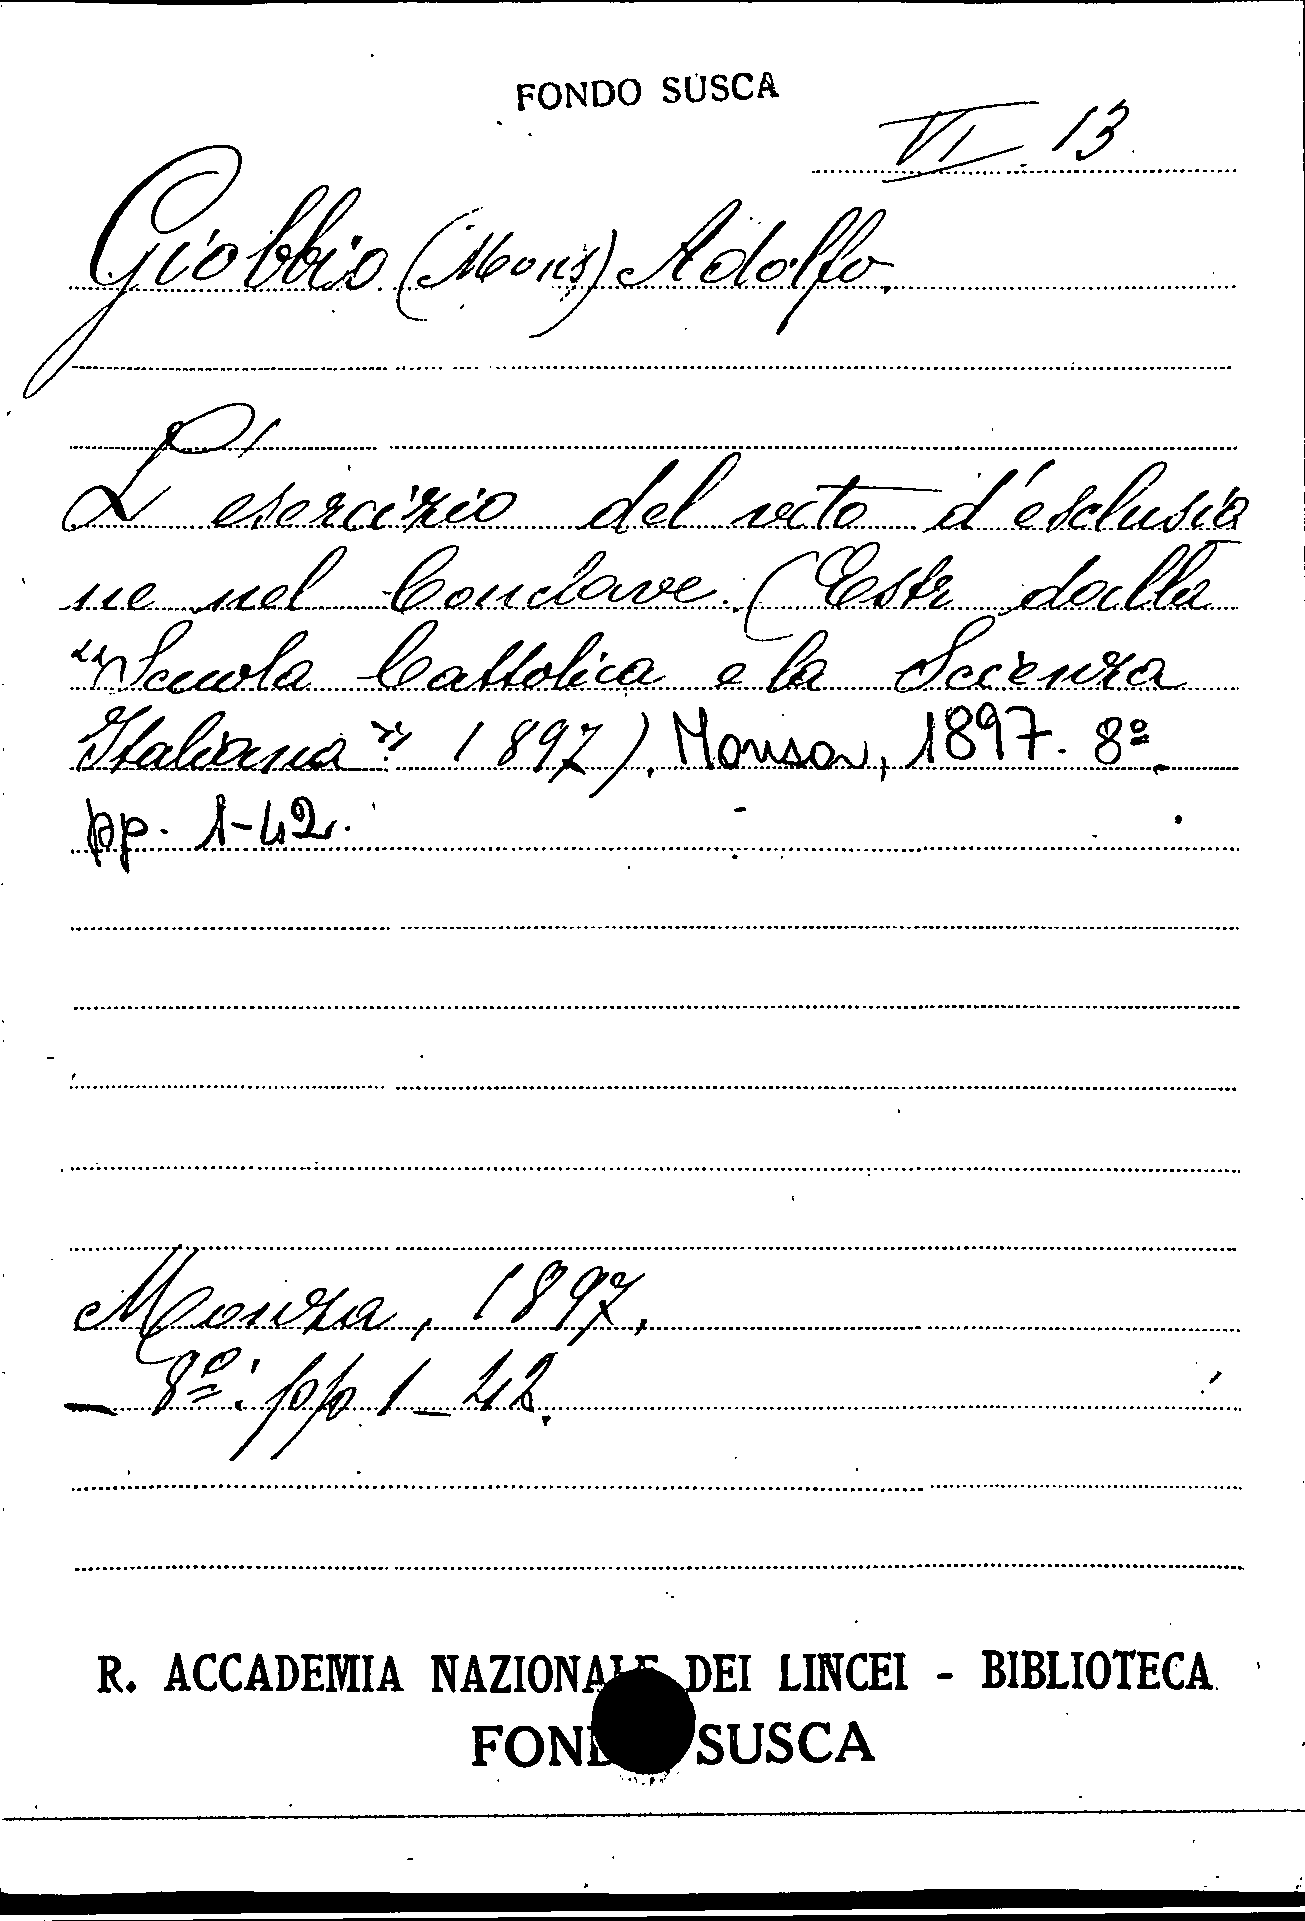 FONDO SUSCA
VI. 13
Giobbio (Mons) Adolfo.
L'esercizio del veto d'esclusio
ne nel Conclave. (Estr dalla
"Scuola Cattolica e la Scienza
Italiana" 1897). Monza, 1897. 8º.
pp. 1-42.
Monza, 1897.
— 8º: pp 1-42.
R. ACCADEMIA NAZIONALE DEI LINCEI - BIBLIOTECA
FONDO SUSCA